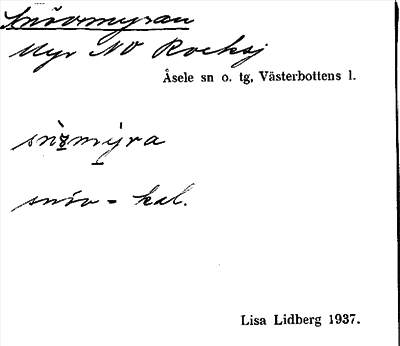 Snövmyran
Myr NV Rocksj
Åsele sn o. tg, Västerbottens l.
snöv = kal.
Lisa Lidberg 1937.